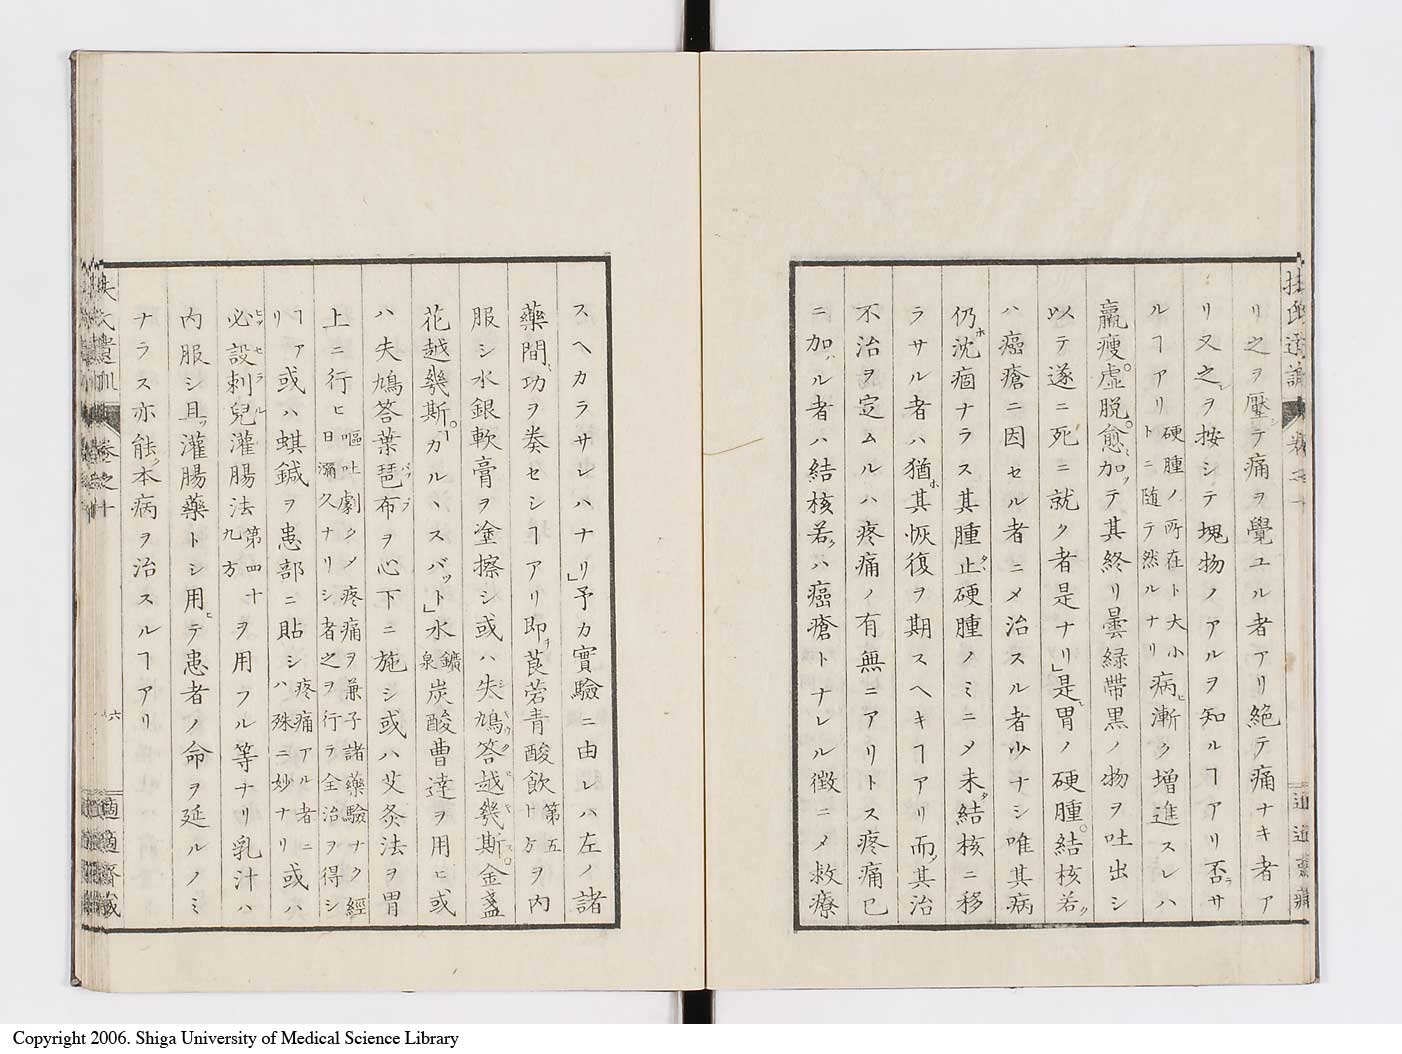 リ之ヲ壓テ痛ヲ覺ユル者アリ絶テ痛ナキ者ア
リ又之ヲ按シテ塊物ノアルヲ知ルヿアリ否サ
ルヿアリ硬腫ノ所在ト大小トニ随テ然ルナリ病漸ク增進スレハ
羸瘦虛脱愈加テ其終リ曇緑帶黒ノ物ヲ吐出シ
以テ遂ニ死ニ就ク者是ナリ」是胃ノ硬腫結核若
ハ癌瘡ニ因セル者ニメ治スル者少ナシ唯其病
仍沈痼ナラス其腫止硬腫ノミニメ未結核ニ移
ラサル者ハ猶其恢復ヲ期スヘキヿアリ而其治
不治ヲ定ムルハ疼痛ノ有無ニアリトス疼痛已
ニ加ル者ハ結核若ハ癌瘡トナレル徴ニメ救療
スヘカラサレハナリ」予カ實驗ニ由レハ左ノ諸
藥間功ヲ奏セシヿアリ即莨菪青酸飲第五十方ヲ内
服シ水銀軟膏ヲ塗擦シ或ハ失鳩答越幾斯金盞
花越幾斯カルヽスバット」水鑛泉炭酸曹達ヲ用ヒ或
ハ失鳩答葉琶布ヲ心下ニ施シ或ハ艾灸法ヲ胃
上ニ行ヒ嘔吐劇クメ疼痛ヲ兼子諸藥驗ナク經日濔久ナリシ者之ヲ行ラ全治ヲ得シ
ヿアリ或ハ蜞鍼ヲ患部ニ貼シ疼痛アル者ニハ殊ニ妙ナリ或ハ
必設刺兒灌腸法第四十九方ヲ用フル等ナリ乳汁ハ
内服シ且灌腸藥トシ用テ患者ノ命ヲ延ルノミ
ナラス亦能本病ヲ治スルヿアリ
氏遺訓
卷之十
六
適適齋藏